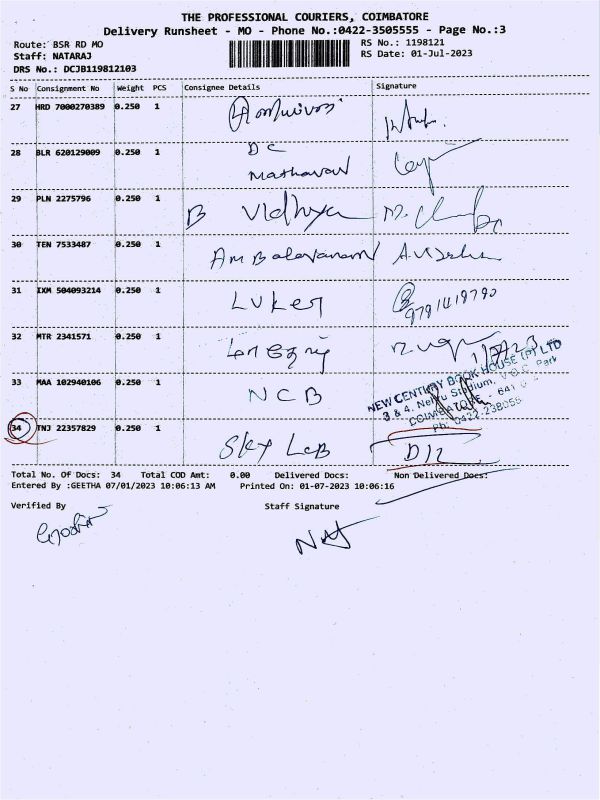 THE PROFESSIONAL COURIERS, COIMBATORE
Delivery Runsheet - MO - Phone No.:0422-3505555 - Page No.:3
Route: BSR RD MO
RS No.: 1198121
Staff: NATARAJ
RS Date: 01-Jul-2023
DRS No.: DCJB119812103
S No Consignment No Weight PCS Consignee Details Signature
27 HRD 7000270389 0.250 1
28 BLR 620129009 0.250 1 DC
Mathavan
29 PLN 2275796 0.250 1 B Vidhya
30 TEN 7533487 0.250 1 Ambalavanan
31 IXM 504093214 0.250 1 LUKER 9791419790
32 MTR 2341571 0.250 1
33 MAA 102940106 0.250 1 NCB
NEW CENTURY BOOK HOUSE (P) LTD
3 & 4, Nehru Stadium, V.O.C. Park
COIMBATORE - 641
Ph: 0422-238055
34 TNJ 22357829 0.250 1 SKY LAB
Total No. Of Docs: 34 Total COD Amt: 0.00 Delivered Docs: Non Delivered Docs:
Entered By :GEETHA 07/01/2023 10:06:13 AM Printed On: 01-07-2023 10:06:16
Verified By Staff Signature